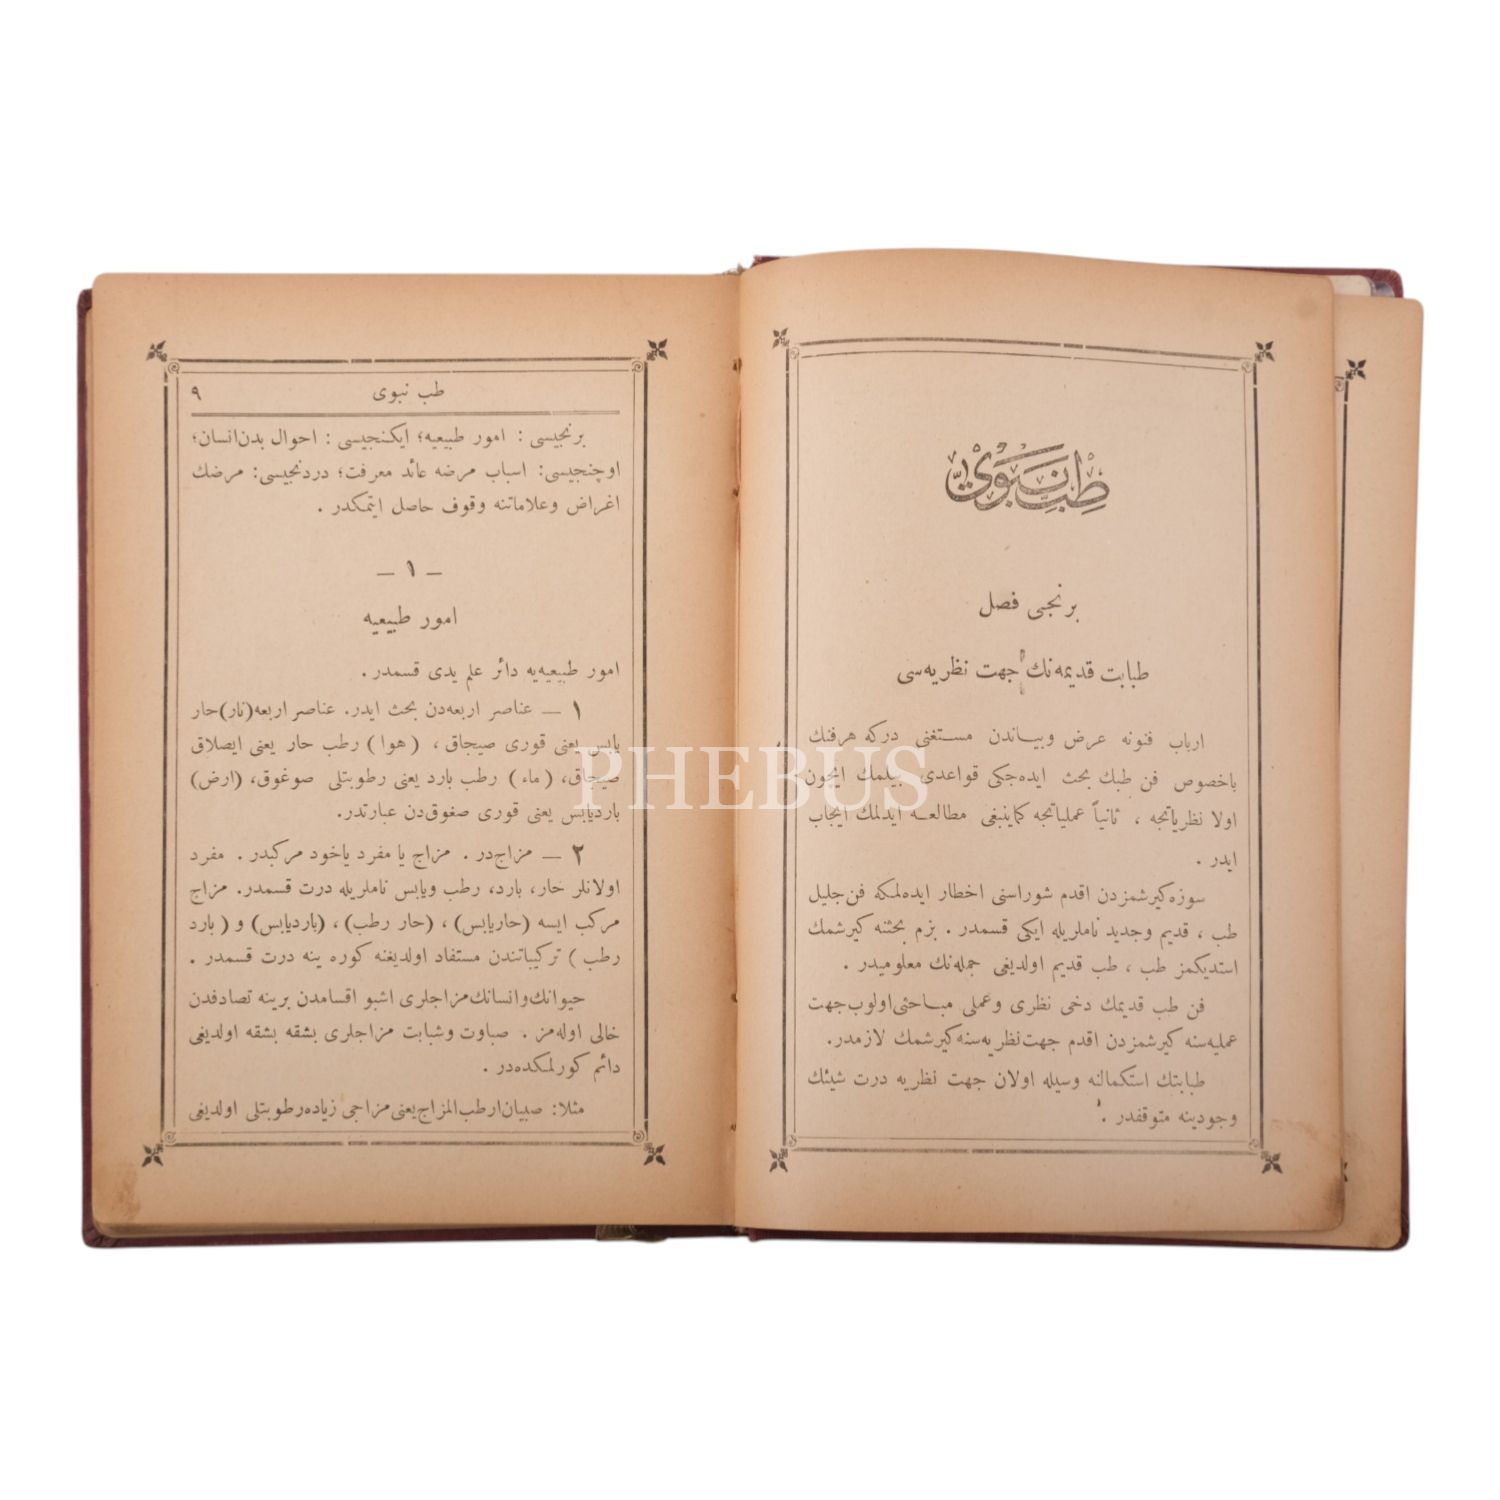 طب نبوى
برنجى فصل
طبابت قديمه‌نك جهت نظريه‌سى
ارباب فنونه عرض وبياندن مستغنى دركه هرفنك
باخصوص فن طبك بحث ايده‌جكى قواعدى بيلمك ايچون
اولا نظرياتجه ، ثانياً عملياتجه كماينبغى مطالعه ايدلمك ايجاب
ايدر .
سوزه كيرشمزدن اقدم شوراسنى اخطار ايده‌لمكه فن جليل
طب ، قديم وجديد ناملريله ايكى قسمدر . بزم بحثنه كيرشمك
استديكمز طب ، طب قديم اولديغى جمله‌نك معلوميدر .
فن طب قديمك دخى نظرى وعملى مباحثى اولوب جهت
عمليه‌سنه كيرشمزدن اقدم جهت نظريه‌سنه كيرشمك لازمدر.
طبابتك استكمالنه وسيله اولان جهت نظريه درت شيئك
وجودينه متوقفدر .
طب نبوى ٩
برنجيسى : امور طبيعيه؛ ايكنجيسى : احوال بدن انسان؛
اوچنجيسى: اسباب مرضه عائد معرفت؛ دردنجيسى: مرضك
اغراض وعلاماتنه وقوف حاصل ايتمكدر .
— ١ —
امور طبيعيه
امور طبيعيه‌يه دائر علم يدى قسمدر .
١ — عناصر اربعه‌دن بحث ايدر. عناصر اربعه (نار) حار
يابس يعنى قورى صيجاق ، (هوا) رطب حار يعنى ايصلاق
صيجاق، (ماء) رطب بارد يعنى رطوبتلى صوغوق، (ارض)
بارديابس يعنى قورى صغوق‌دن عبارتدر.
٢ — مزاج‌در . مزاج يا مفرد ياخود مركبدر . مفرد
اولانلر حار، بارد، رطب ويابس ناملريله درت قسمدر. مزاج
مركب ايسه (حاريابس) ، (حار رطب) ، (بارديابس) و (بارد
رطب) تركيباتندن مستفاد اولديغنه كوره ينه درت قسمدر .
حيوانك وانسانك مزاجلرى اشبو اقسامدن برينه تصادفدن
خالى اوله‌مز . صباوت وشبابت مزاجلرى بشقه بشقه اولديغى
دائم كورلمكده‌در .
مثلا: صبيان ارطب المزاج يعنى مزاجى زياده رطوبتلى اولديغى
PHEBUS